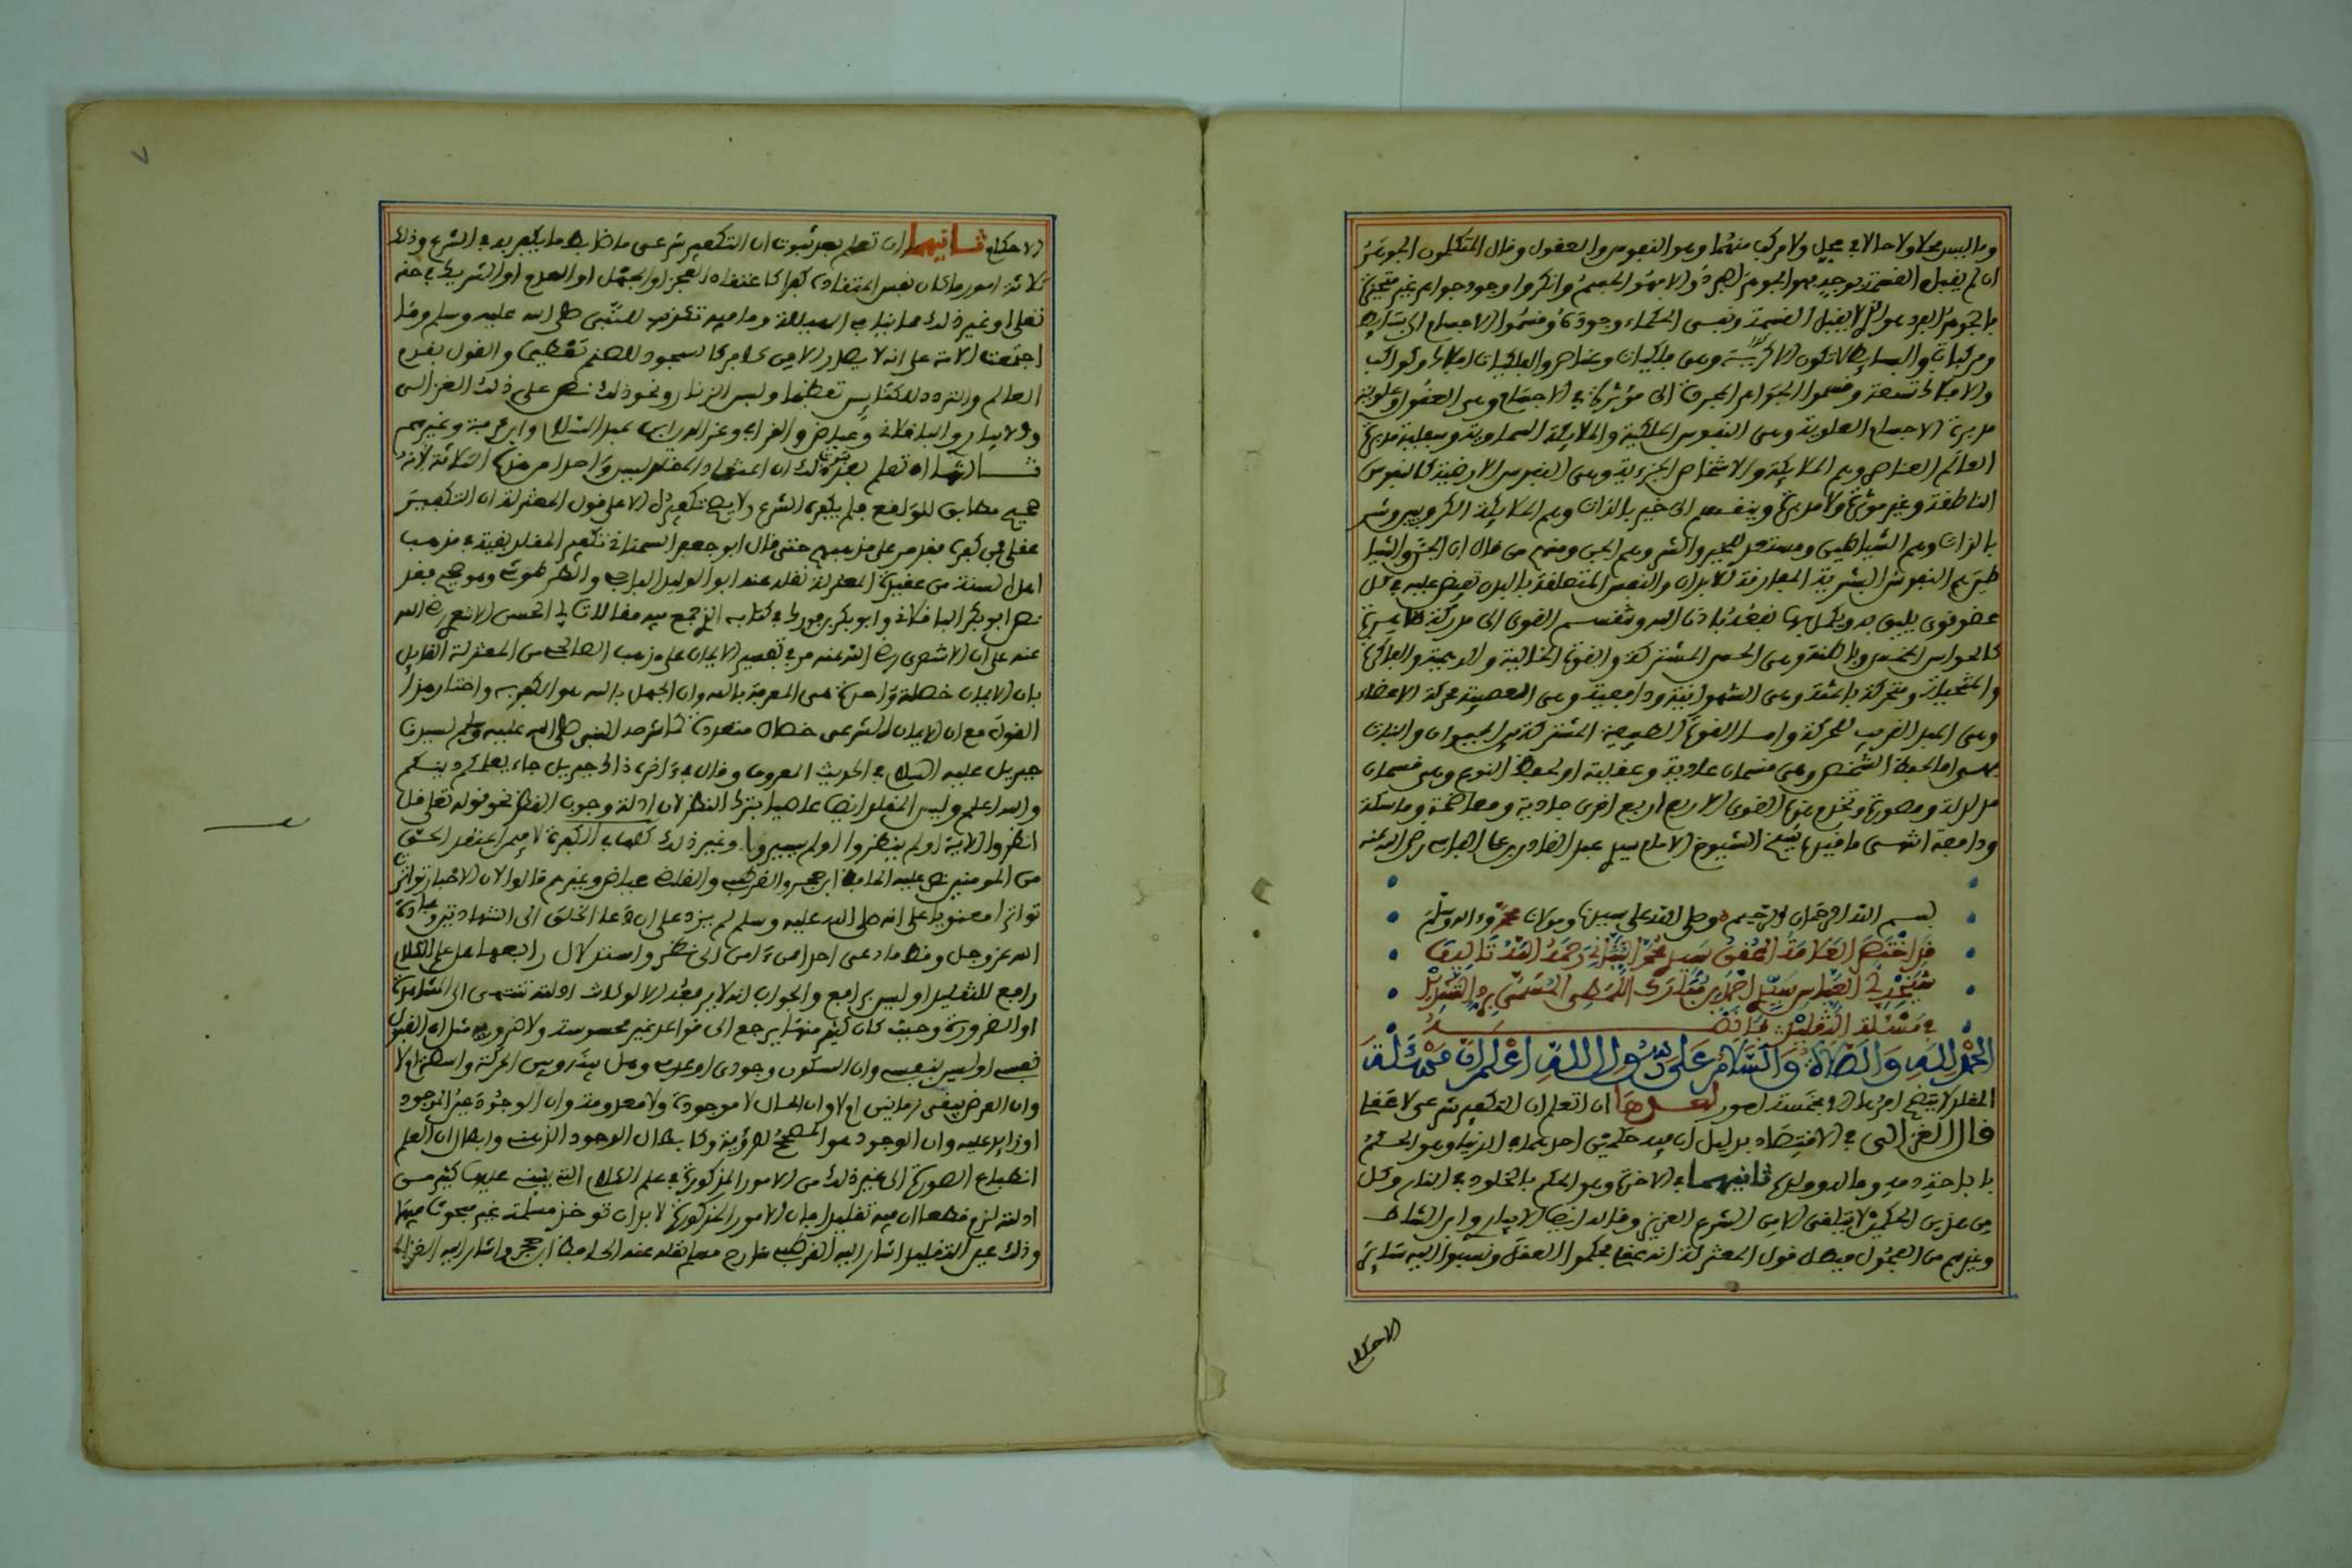 وما ليس محلا ولا حالا في محل ولا مركب منهما وهو النفوس والعقول وقال المتكلمون الجوهر
ان لم يقبل القسمة بوجه فهو الجوهر الفرد والا فهو الجسم وانكروا وجود جواهر غير متحيزة
فالجوهر الفرد هو الذي لا يقبل القسمة ونفى الحكماء وجوده وقسموا الاجسام الى بسايط
ومركبات والبسايط لا تكون الا كرية وهي فلكيات وعناصر والفلكيات افلاك وكواكب
والافلاك تسعة وقسموا الجواهر المجردة الى مؤثرة في الاجسام وهي العقول وعلوية
مدبرة الاجسام العلوية وهي النفوس الفلكية والملايكة السماوية وسفلية مدبرة
العالم العناصر وهم الملايكة والاشخاص الجزءية وهي النفوس الارضية كالنفوس
الناطقة وغير مؤثرة ولا مدبرة وينقسم الى خير بالذات وهم الملايكة الكروبيون وشر
بالذات وهم الشياطين ومستعد للخير والشر وهم الجن ومنهم من قال ان الجن والشيا
طين هم النفوس البشرية المفارقة للابدان والنفس المتعلقة بالبدن تفيض عليه في كل
عضو قوى يليق به ويكمل بها نفعه باذن الله وتنقسم القوى الى مدركة ظاهرة
كالحواس الخمس وباطنة وهي الحس المشتركة والقوة الخيالية والوهمية والذاكرة
والمتخيلة ومحركة باعثة وهي الشهوانية ودافعية وهي الغضبية محركة الاعضاء
وهي المبدا القريب للحركة واما القوة الطبيعية المشتركة بين الحيوان والنبات
فهي اما لحفظ الشخص وهي قسمان غاذية و او لحفظ النوع وهي قسمان
مولدة ومصورة وتخدم هذه القوى الاربع اربع اخرى جاذبة وهاضمة وماسكة
ودافعة انتهى ما قيدها شيخ الشيوخ الامام سيدي عبد القادر بن علي الفاسي رضي الله عنه
بسم الله الرحمان الرحيم وصلى الله على سيدنا ومولانا محمد وءاله وسلم
قد اختصر العلامة المحقق سيدي محمد رحمه الله تاليف
شيخه ابي العباس سيدي احمد بن مبارك اللمطي المسمى برد التشديد
في مسئلة التقليد فانظره
الحمد لله والصلاة والسلام على رسول الله اعلم ان مسئلة
المقلد لا يتضح امرها الا بخمسة امور احدها ان تعلم ان التكفير شرعي لا عقلي
قال الغزالي في الاقتصاد بدليل ان فيه حكمين احدهما في الدنيا وهو الحكم
باباحة دمه وماله وولده ثانيهما في الاخرة وهو الحكم بالخلود في النار وكل
من هذين الحكمين لا يتلقى الا من الشرع العزيز وقاله ايضا الابياري وابن الشاط
وغيرهم من الفحول فبطل قول المعتزلة انه عقلي فحكموا العقل ونسبوا اليه سائر
الاحكام
الاحكام ثانيهما ان تعلم بعد ثبوت ان التكفير شرعي ما ضابط ما يكفر به في الشرع وذلك
ثلاثة امور ما كان نفس اعتقاده كفرا كاعتقاد العجز او الجهل او العدم او الشريك في حقه
تعلى وغير ذلك مما ينافي الرسالة وما فيه تكذيب للنبي صلى الله عليه وسلم وما
اجتمعت الامة على انه لا يصدر الا من كافر كالسجود للصنم تعظيما والقول بقدم
العالم والتردد للكنايس تعظيما ولبس الزنار ونحو ذلك نص على ذلك الغزالي
والابياري والباقلاني وعياض والقرافي وعز الدين بن عبد السلام وابن عرفة وغيرهم
ثالثها ان تعلم بعد ثبوت ذلك ان اعتقاد المقلد ليس واحدا من هذه الثلاثة لانه
صحيح مطابق للواقع فلم يكفره الشرع ولا يصح تكفيره الا على قول المعتزلة ان التكفير
عقلي فمن كفره فقد مر على مذهبهم حتى قال ابو جعفر السمناني تكفير المقلد بقية في مذهب
اهل السنة من عقيدة المعتزلة نقله عنه ابو الوليد الباجي والطرطوشي وهو صحيح فقد
نص ابو بكر الباقلاني وابو بكر بن فورك في كتابه الذي جمع فيه مقالات ابي الحسن الاشعري رضي الله
عنه على ان الاشعري رضي الله عنه مر في تفسير الايمان على مذهب الصالحي من المعتزلة القايل
بان الايمان خصلة واحدة هي المعرفة بالله وان الجهل بالله هو الكفر به واختار هذا
القول مع ان الايمان الشرعي خصال متعددة كما شرحه النبي صلى الله عليه وسلم لسيدنا
جبريل عليه السلام في الحديث المعروف وقال في ءاخره ذاك جبريل جاء يعلمكم دينكم
والله اعلم وليس المقلد ايضا عاصيا بترك النظر لان ادلة وجوب النظر نحو قوله تعلى قل
انظروا الاية اولم ينظروا اولم يسيروا وغير ذلك كلها في الكفرة لا فيمن اعتقد الحق
من المومنين نص عليه الحافظ ابن حجر والقرطبي والقاضي عياض وغيرهم قالوا لان الاخبار تواترت
تواترا معنويا على انه صلى الله عليه وسلم لم يزد على ان دعا الخلق الى الشهادتين وعبادة
الله عز وجل وقط ما دعى احدا ممن ءامن الى نظر واستدلال رابعها هل علم الكلام
رافع للتقليد او ليس برافع والجواب انه لا يرفعه الا لو كانت ادلته تنتهي الى المشاهدة
او الضرورة وحيث كان كثير منها يرجع الى قواعد غير محسوسة ولا ضرورية مثل ان القبول
نفسي او ليس بنفسي وان السكون وجودي او عدمي وهل بينه وبين الحركة واسطة او لا
وان العرض يبقى زمانين او لا وان الحال لا موجودة ولا معدومة وان الوجود عين الموجود
او زايد عليه وان الوجود هو المصحح للرؤية وكابطال الوجود الذهني وابطال ان العلم
انطباع الصورة الى غير ذلك من الامور المذكورة في علم الكلام التي ينبني عليها كثير من
ادلته لزم قطعا ان فيه تقليدا فان الامور المذكورة لا بد ان توخذ مسلمة غير مبحوث فيها
وذلك عين التقليد اشار اليه القرطبي شارح مسلم نقله عنه الحافظ ابن حجر واشار اليه الغزالي